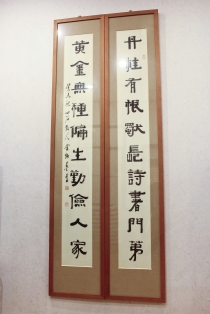 丹桂有根獃長詩書門第
黃金無種偏生勤儉人家